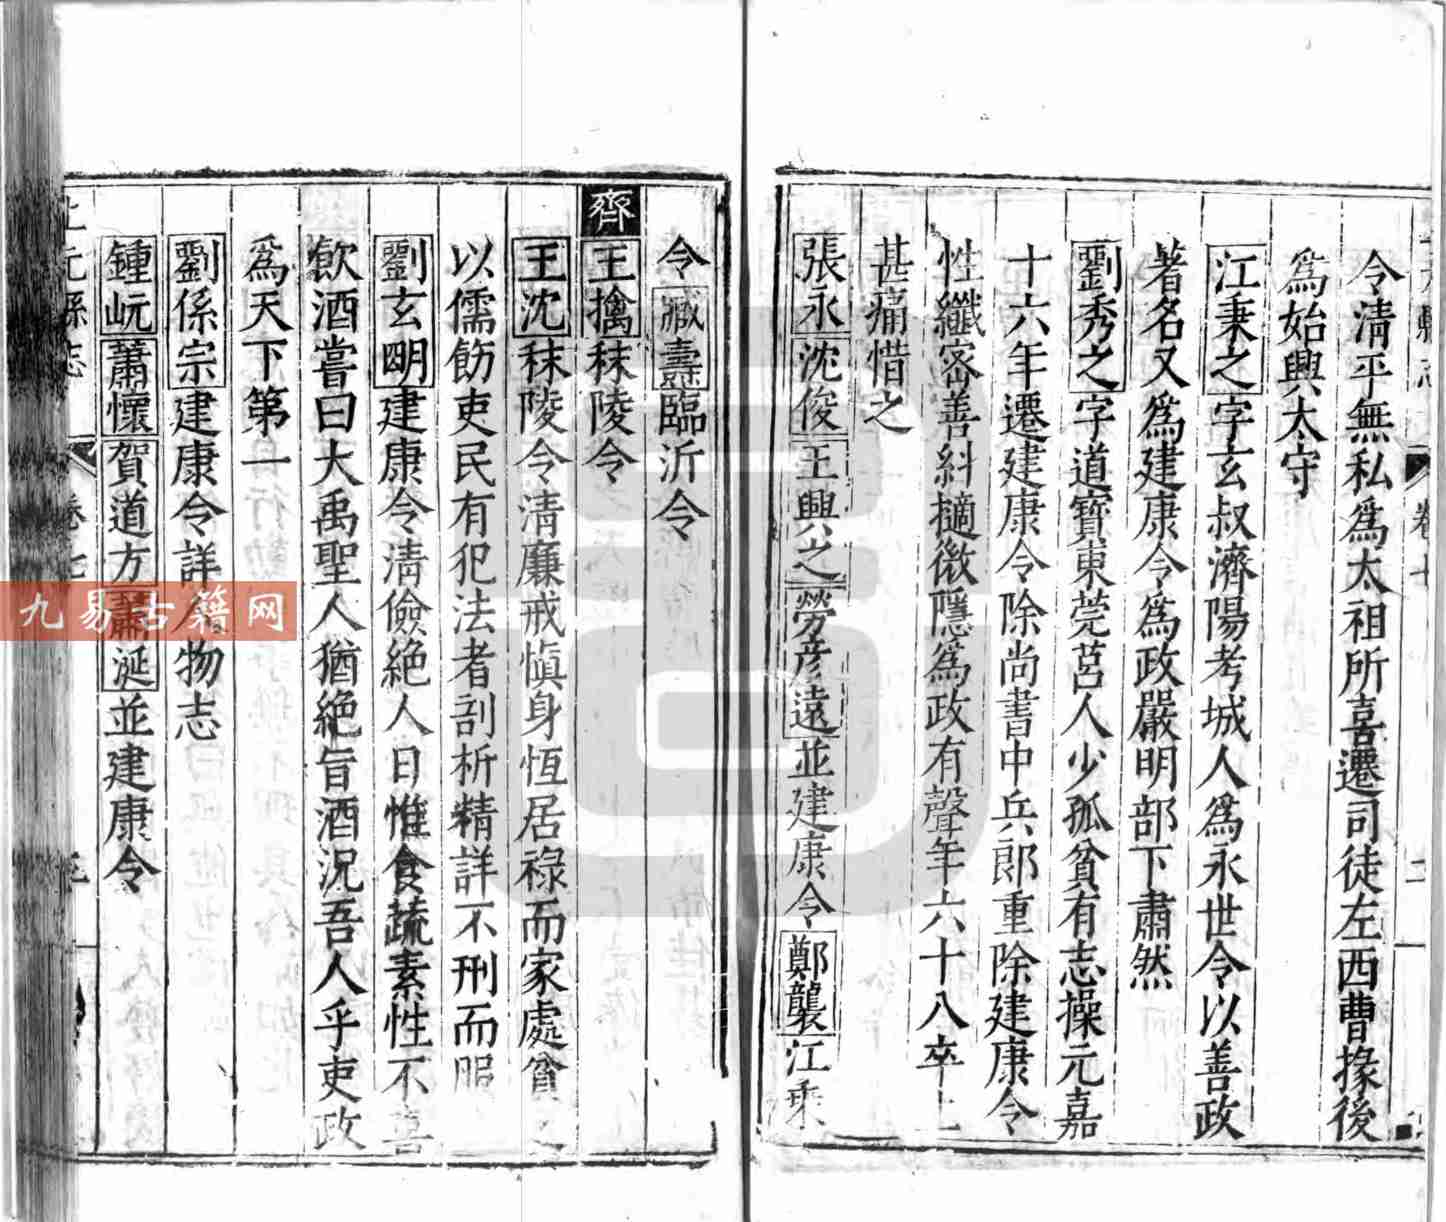 令清平無私爲太祖所喜遷司徒左西曹掾後
爲始興太守
江秉之字玄叔濟陽考城人爲永世令以善政
著名又爲建康令爲政嚴明部下肅然
劉秀之字道寶東莞莒人少孤貧有志操元嘉
十六年遷建康令除尚書中兵郎重除建康令
性纖密善糾擿微隱爲政有聲年六十八卒上
甚痛惜之
張永沈俊王興之勞彦遠並建康令鄭襲江乘
令臧壽臨沂令
齊王擒秣陵令
王沈秣陵令清廉戒愼身恆居祿而家處貧之
以儒飭吏民有犯法者剖析精詳不刑而服
劉玄明建康令清儉絶人日惟食蔬素性不喜
飲酒嘗曰大禹聖人猶絶旨酒况吾人乎吏政
爲天下第一
劉係宗建康令詳人物志
鍾岏蕭懷賀道方蕭涎並建康令
上元縣志 卷七 三
九易古籍网